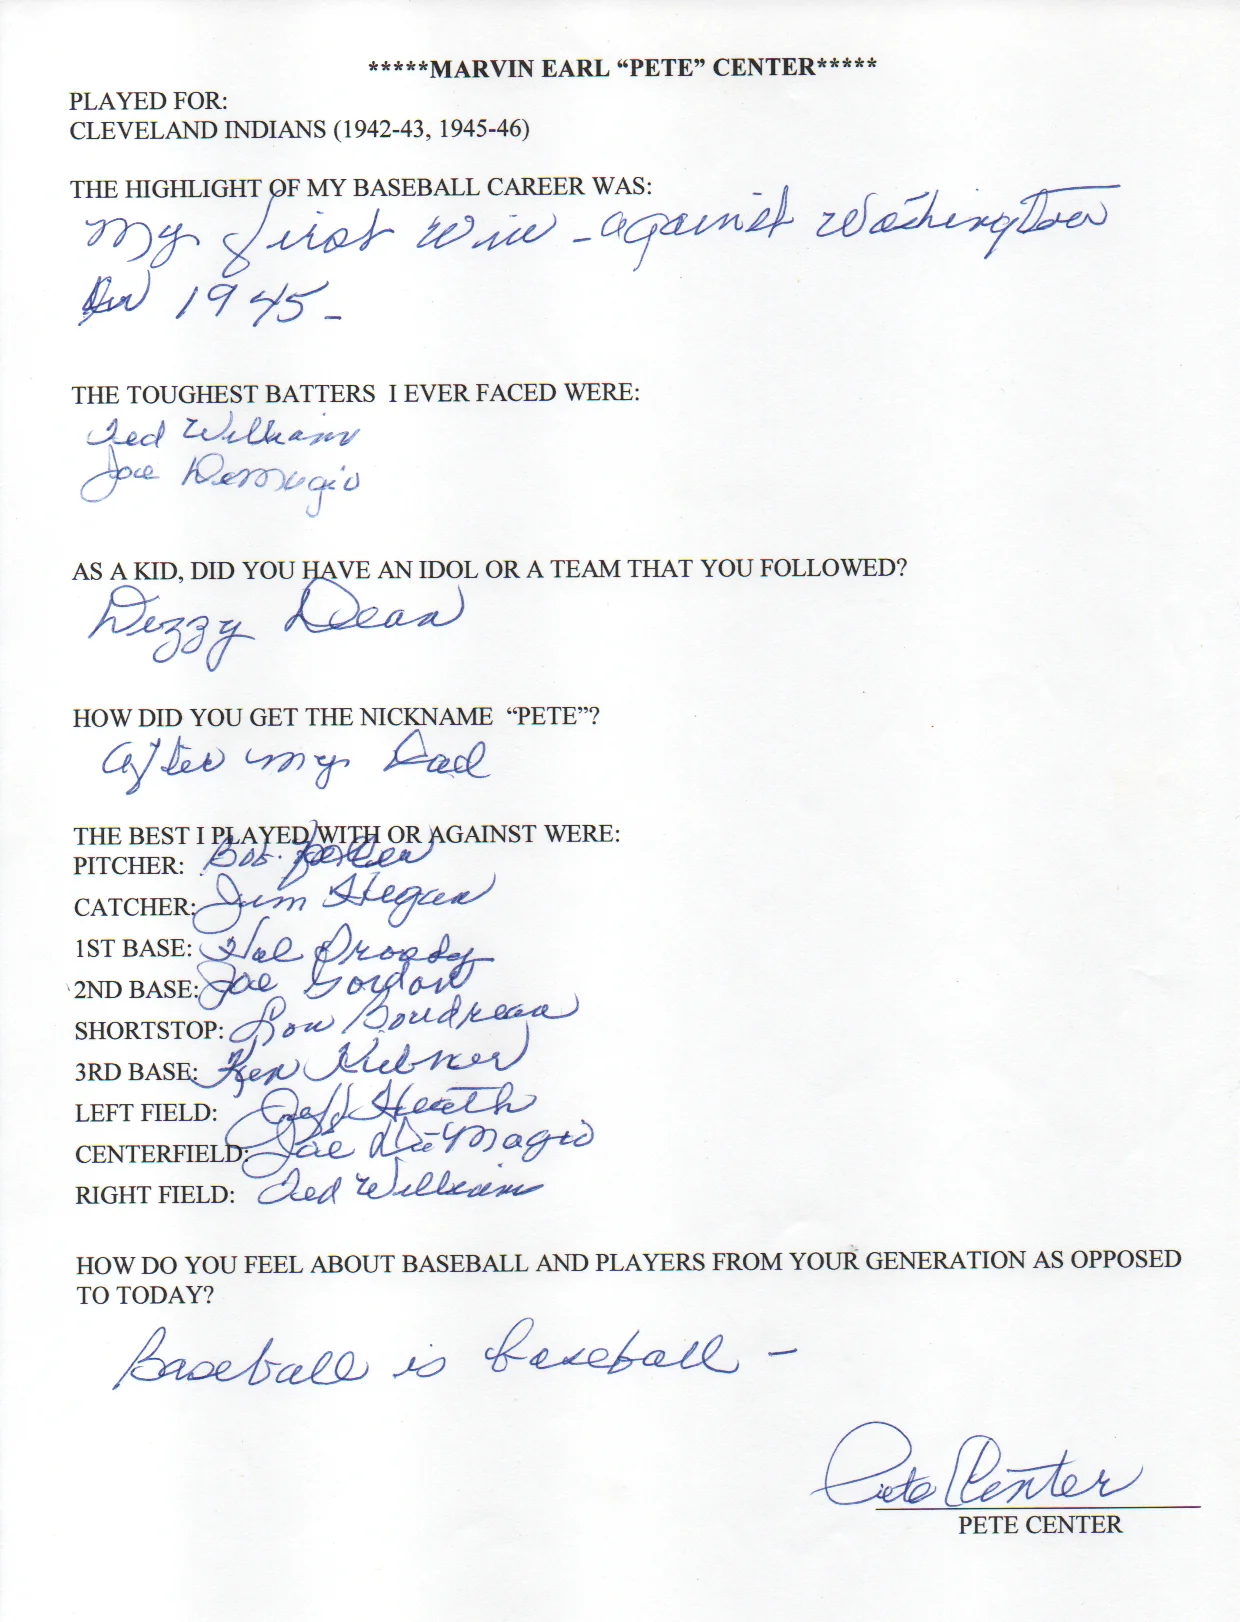 *****MARVIN EARL “PETE” CENTER*****
PLAYED FOR:
CLEVELAND INDIANS (1942-43, 1945-46)
THE HIGHLIGHT OF MY BASEBALL CAREER WAS:
My first win - against Washington
in 1945 -
THE TOUGHEST BATTERS I EVER FACED WERE:
Ted Williams
Joe Demagio
AS A KID, DID YOU HAVE AN IDOL OR A TEAM THAT YOU FOLLOWED?
Dizzy Dean
HOW DID YOU GET THE NICKNAME “PETE”?
After my Dad
THE BEST I PLAYED WITH OR AGAINST WERE:
PITCHER: Bob Feller
CATCHER: Jim Hegan
1ST BASE: Hal Trosky
2ND BASE: Joe Gordon
SHORTSTOP: Lou Boudreau
3RD BASE: Ken Keltner
LEFT FIELD: Jeff Heath
CENTERFIELD: Joe DiMagio
RIGHT FIELD: Ted Williams
HOW DO YOU FEEL ABOUT BASEBALL AND PLAYERS FROM YOUR GENERATION AS OPPOSED
TO TODAY?
Baseball is baseball -
Pete Center
PETE CENTER